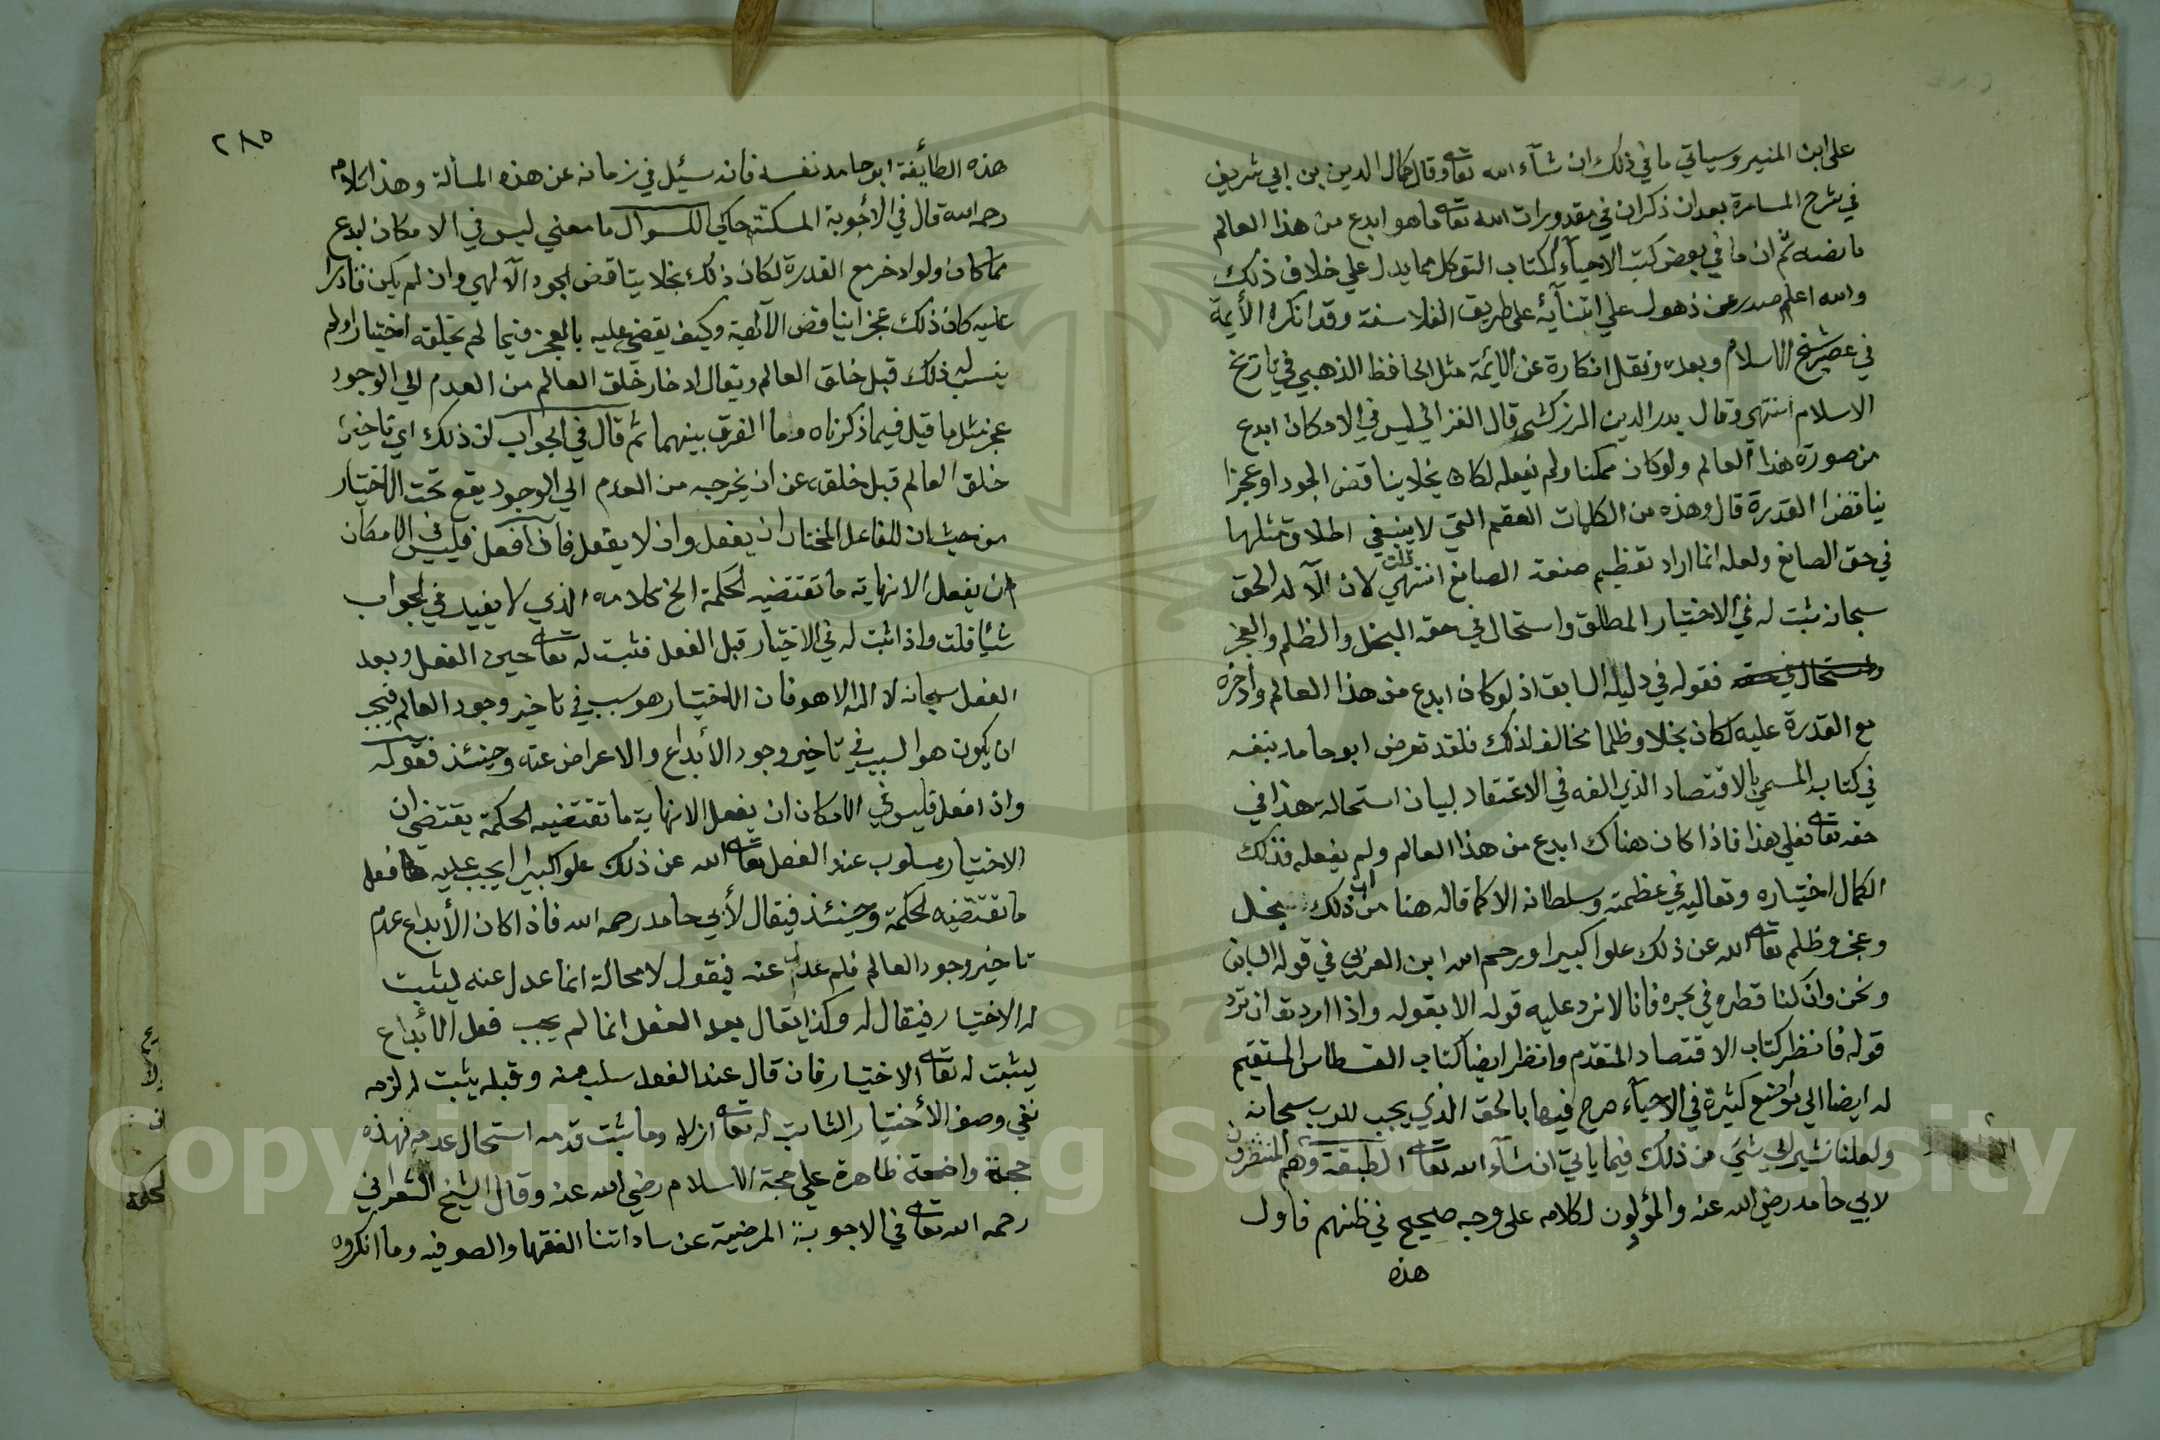 على ابن المنير وسياتي ما في ذلك ان شآء الله تعا وقال كمال الدين بن ابي شريف
في شرح المسامرة بعد ان ذكر ان في مقدورات الله تعا ما هو ابدع من هذا العالم
ما نصه ثم ان ما في بعض كتب الاحيآء ككتاب التوكل مما يدل علي خلاف ذلك
والله اعلم صدر عن ذهول علي ابتنآئه على طريق الفلاسفة وقد انكره الأيمة
في عصر شيخ الاسلام وبعده ونقل انكاره عن الايمة مثل الحافظ الذهبي في تاريخ
الاسلام انتهى وقال بدر الدين الزركشي قال الغزالي ليس في الامكان ابدع
من صورة هذا العالم ولو كان ممكنا ولم يفعله لكان بخلا يناقض الجود او عجزا
يناقض القدرة قال وهذه من الكلمات العقم التي لا ينبغي اطلاق مثلها
في حق الصانع ولعله انما اراد تعظيم صنعة الصانع انتهي قلت لان الآله الحق
سبحانه ثبت له في الاختيار المطلق واستحال في حقه البخل والظلم والعجز
فقوله في دليله السابق اذ لو كان ابدع من هذا العالم وادخره
مع القدرة عليه لكان بخلا وظلما مخالف لذلك فلقد تعرض ابو حامد بنفسه
في كتابه المسمي بالاقتصاد الذي الفه في الاعتقاد لبيان استحالة هذا في
حقه تعا فعلي هذا فاذا كان هناك ابدع من هذا العالم ولم يفعله فذلك
لكمال اختياره وتعاليه في عظمته وسلطانه لا كما قاله هنا من ان ذلك بخل
وعجز وظلم تعا الله عن ذلك علوا كبيرا ورحم الله ابن العربي في قوله السابق
ونحن وان كنا قطرة في بحره فانا لا نرد عليه قوله الا بقوله واذا اردت ان ترد
قوله فانظر كتاب الاقتصاد المتقدم وانظر ايضا كتاب القسطاس المستقيم
له ايضا الي مواضع كثيرة في الاحيآء صرح فيها بالحق الذي يجب للرب سبحانه
ولعلنا نشير الي شيء من ذلك فيما ياتي ان شآء الله تعا الطبقة وهم المنتصرون
لابي حامد رضي الله عنه والمؤلون لكلامه على وجه صحيح في ظنهم فاول
هذه
٢٨٥
هذه الطائفة ابو حامد نفسه فانه سئل في زمانه عن هذه المسألة وهذا كلامه
رحمه الله قال في الأجوبة المسكتة حاكي السوال ما معني ليس في الامكان ابدع
مما كان ولو ادخر مع القدرة لكان ذلك بخلا يناقض الجود الآلهي وان لم يكن قادرا
عليه كان ذلك عجزا يناقض الآلهية وكيف يقضي عليه بالعجز فيما لم يخلقه اختيارا ولم
ينسب له ذلك قبل خلق العالم ويقال ادخار خلق العالم من العدم الي الوجود
عجز مثل ما قيل فيما ذكرناه وما الفرق بينهما ثم قال في الجواب لن ذلك اي تاخير
خلق العالم قبل خلقه عن ان يخرجه من العدم الي الوجود يقع تحت الاختيار
من حيث ان للفاعل المختار ان يفعل وان لا يفعل فاذا فعل فليس في الامكان
ان يفعل الا نهاية ما تقتضيه الحكمة الخ كلامه الذي لا يفيد في الجواب
شيا قلت واذا ثبت له في الاختيار قبل الفعل فثبت له تعا حين الفعل وبعد
الفعل سبحانه لا اله الا هو فان الاختيار هو سبب في تاخير وجود العالم فيجب
ان يكون هو السبب في تاخير وجود الأبداع والاعراض عنه وحينئذ فقوله
واذا فعل فليس في الامكان ان يفعل الا نهاية ما تقتضيه الحكمة يقتضي ان
الاختيار مسلوب عند الفعل تعا الله عن ذلك علوا كبيرا يجب عليه فعل
ما تقتضيه الحكمة وحينئذ فيقال لأبي حامد رحمه الله فاذا كان الأبداع عدم
تاخير وجود العالم فلم عدل عنه فيقول لا محالة انما عدل عنه ليثبت
له الاختيار فيقال له وكذا يقال بعد الفعل انما لم يجب فعل الأبداع
ليثبت له تعا الاختيار فان قال عند الفعل سلب منه وقبله يثبت له لزمه
نفي وصف الأختيار الثابت له تعا ازلا وما ثبت قدمه استحال عدمه فهذه
حجة واضحة ظاهرة علي حجة الاسلام رضي الله عنه وقال الشيخ الشعراني
رحمه الله تعا في الاجوبة المرضية عن ساداتنا الفقها والصوفيه وما انكروه
Copyright © King Saud University
1957